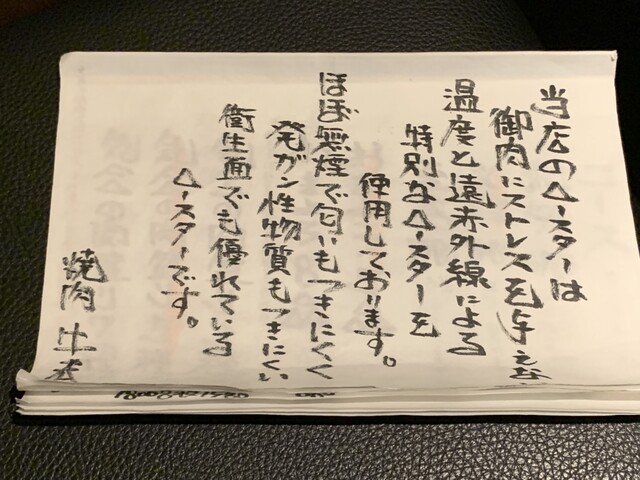 当店のロースターは
御肉にストレスを与えな
温度と遠赤外線による
特別なロースターを
使用しております。
ほぼ無煙で匂いもつきにくく
発ガン性物質もつきにくい
衛生面でも優れている
ロースターです。
焼肉 牛